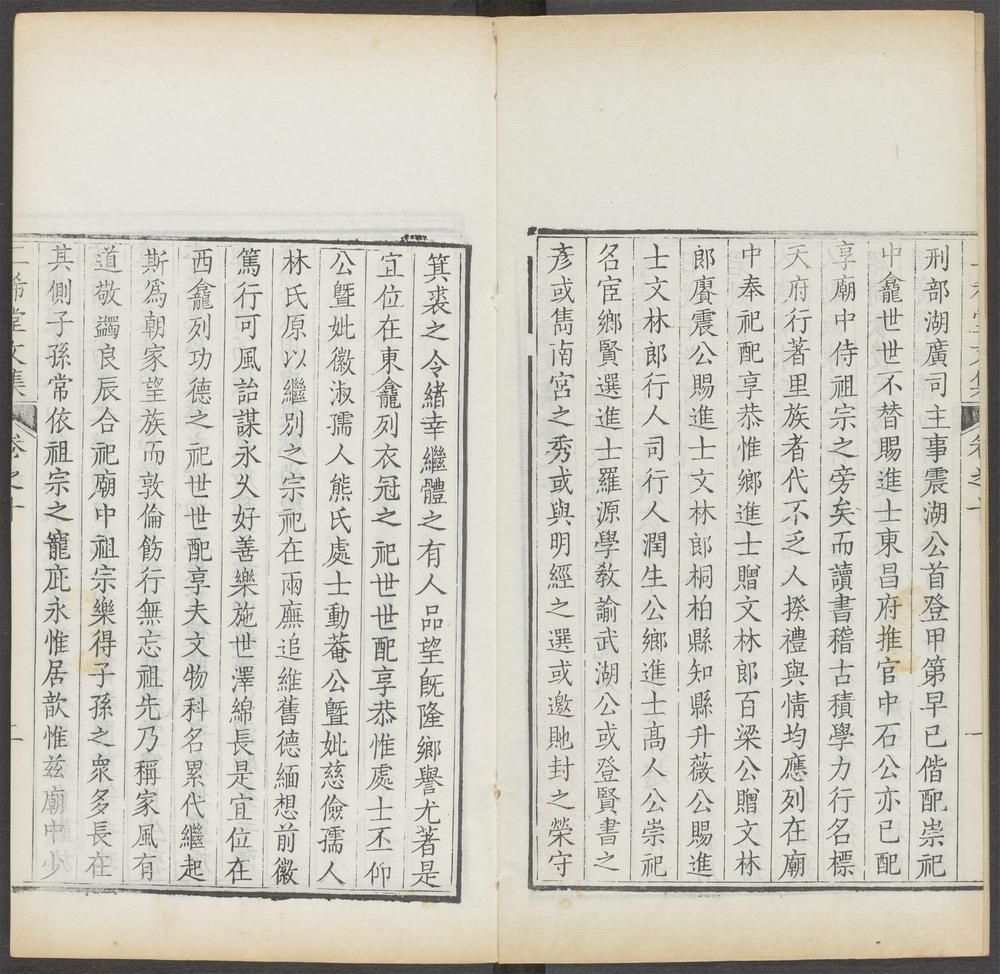 刑部湖廣司主事震湖公首登甲第早已偕配崇祀
中龕世世不替賜進士東昌府推官中石公亦已配
享廟中侍祖宗之旁矣而讀書稽古積學力行名標
天府行著里族者代不乏人揆禮與情均應列在廟
中奉祀配享恭惟鄉進士贈文林郎百梁公贈文林
郎賡震公賜進士文林郎桐柏縣知縣升薇公賜進
士文林郎行人司行人潤生公鄉進士高人公崇祀
名宦鄉賢選進士羅源學教諭武湖公或登賢書之
彥或雋南宮之秀或與明經之選或邀貤封之榮守
箕裘之令緒幸繼體之有人品望既隆鄉譽尤著是
宜位在東龕列衣冠之祀世世配享恭惟處士丕仰
公暨妣徽淑孺人熊氏處士動菴公暨妣慈儉孺人
林氏原以繼別之宗祀在兩廡追維舊德緬想前徽
篤行可風詒謀永久好善樂施世澤綿長是宜位在
西龕列功德之祀世世配享夫文物科名累代繼起
斯爲朝家望族而敦倫飭行無忘祖先乃稱家風有
道敬蠲良辰合祀廟中祖宗樂得子孫之衆多長在
其側子孫常依祖宗之寵庇永惟居歆惟兹廟中少
二希堂文集 卷之十 二